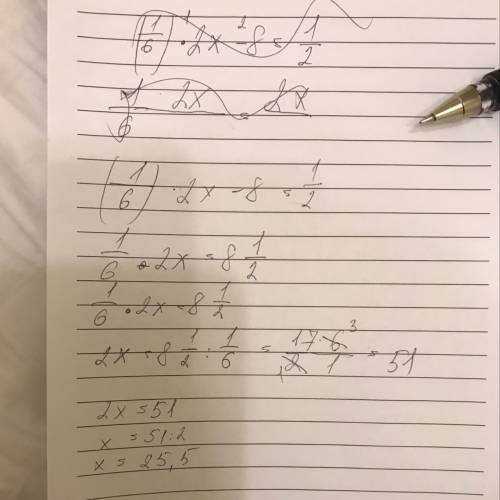 (1/6)¹ · 2x ² - 8 = 1/2
1/6 · 2x = 2x
(1/6) · 2x - 8 = 1/2
1/6 · 2x = 8 1/2
1/6 · 2x = 8 1/2
2x = 8 1/2 : 1/6 = 17·6 ³/₁ 2 1 = 51
2x = 51
x = 51:2
x = 25,5